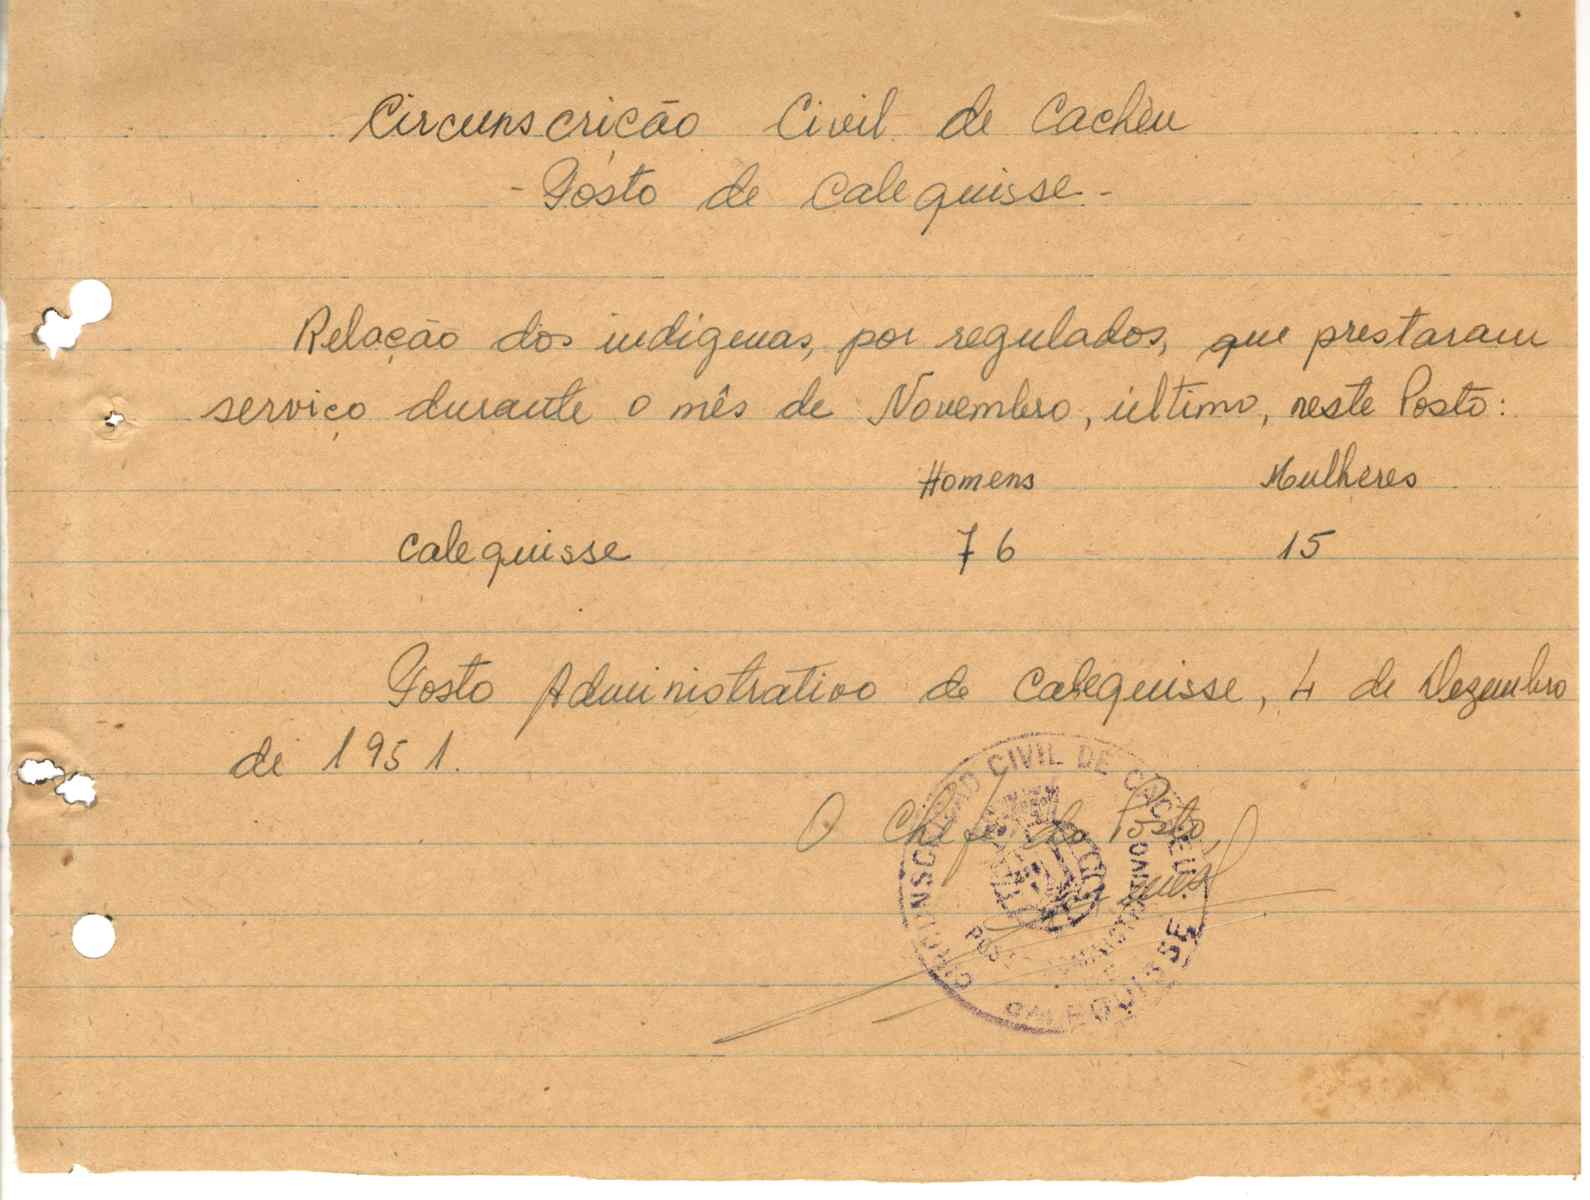 Circunscrição Civil de Cachèu
- Pôsto de Calequisse -
Relação dos indigenas, por regulados, que prestaram
serviço durante o mês de Novembro, último, neste Posto:
Homens Mulheres
Calequisse 76 15
Posto Administrativo de Calequisse, 4 de Dezembro
de 1951.
O Chefe do Posto,
CIRCUNSCRIÇÃO CIVIL DE CACHEU
POSTO ADMINISTRATIVO DE
CALEQUISSE